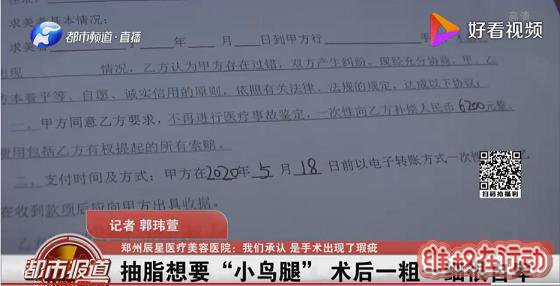 求美者基本情况:
高清
都市频道·直播
好看视频
求美者 年 月 日到甲方行
出现 情况,乙方认为甲方存在过错,双方产生纠纷,现经充分协商,甲、乙
方本着平等、自愿、诚实信用的原则,依照有关法律、法规的规定,达成以下协议:
一、甲方同意乙方要求,不再进行医疗事故鉴定,一次性向乙方补偿人民币6200元整,
费用包括乙方有权提起的所有索赔。
二、支付时间及方式:甲方在2020年5月18日前以电子转账方式一次性
在收到款项后应向甲方出具收据。
扫码抢福利
记者 郭玮萱
郑州辰星医疗美容医院:我们承认 是手术出现了瑕疵
都市报道
抽脂想要“小鸟腿” 术后一粗一细很苦牵
维权在行动